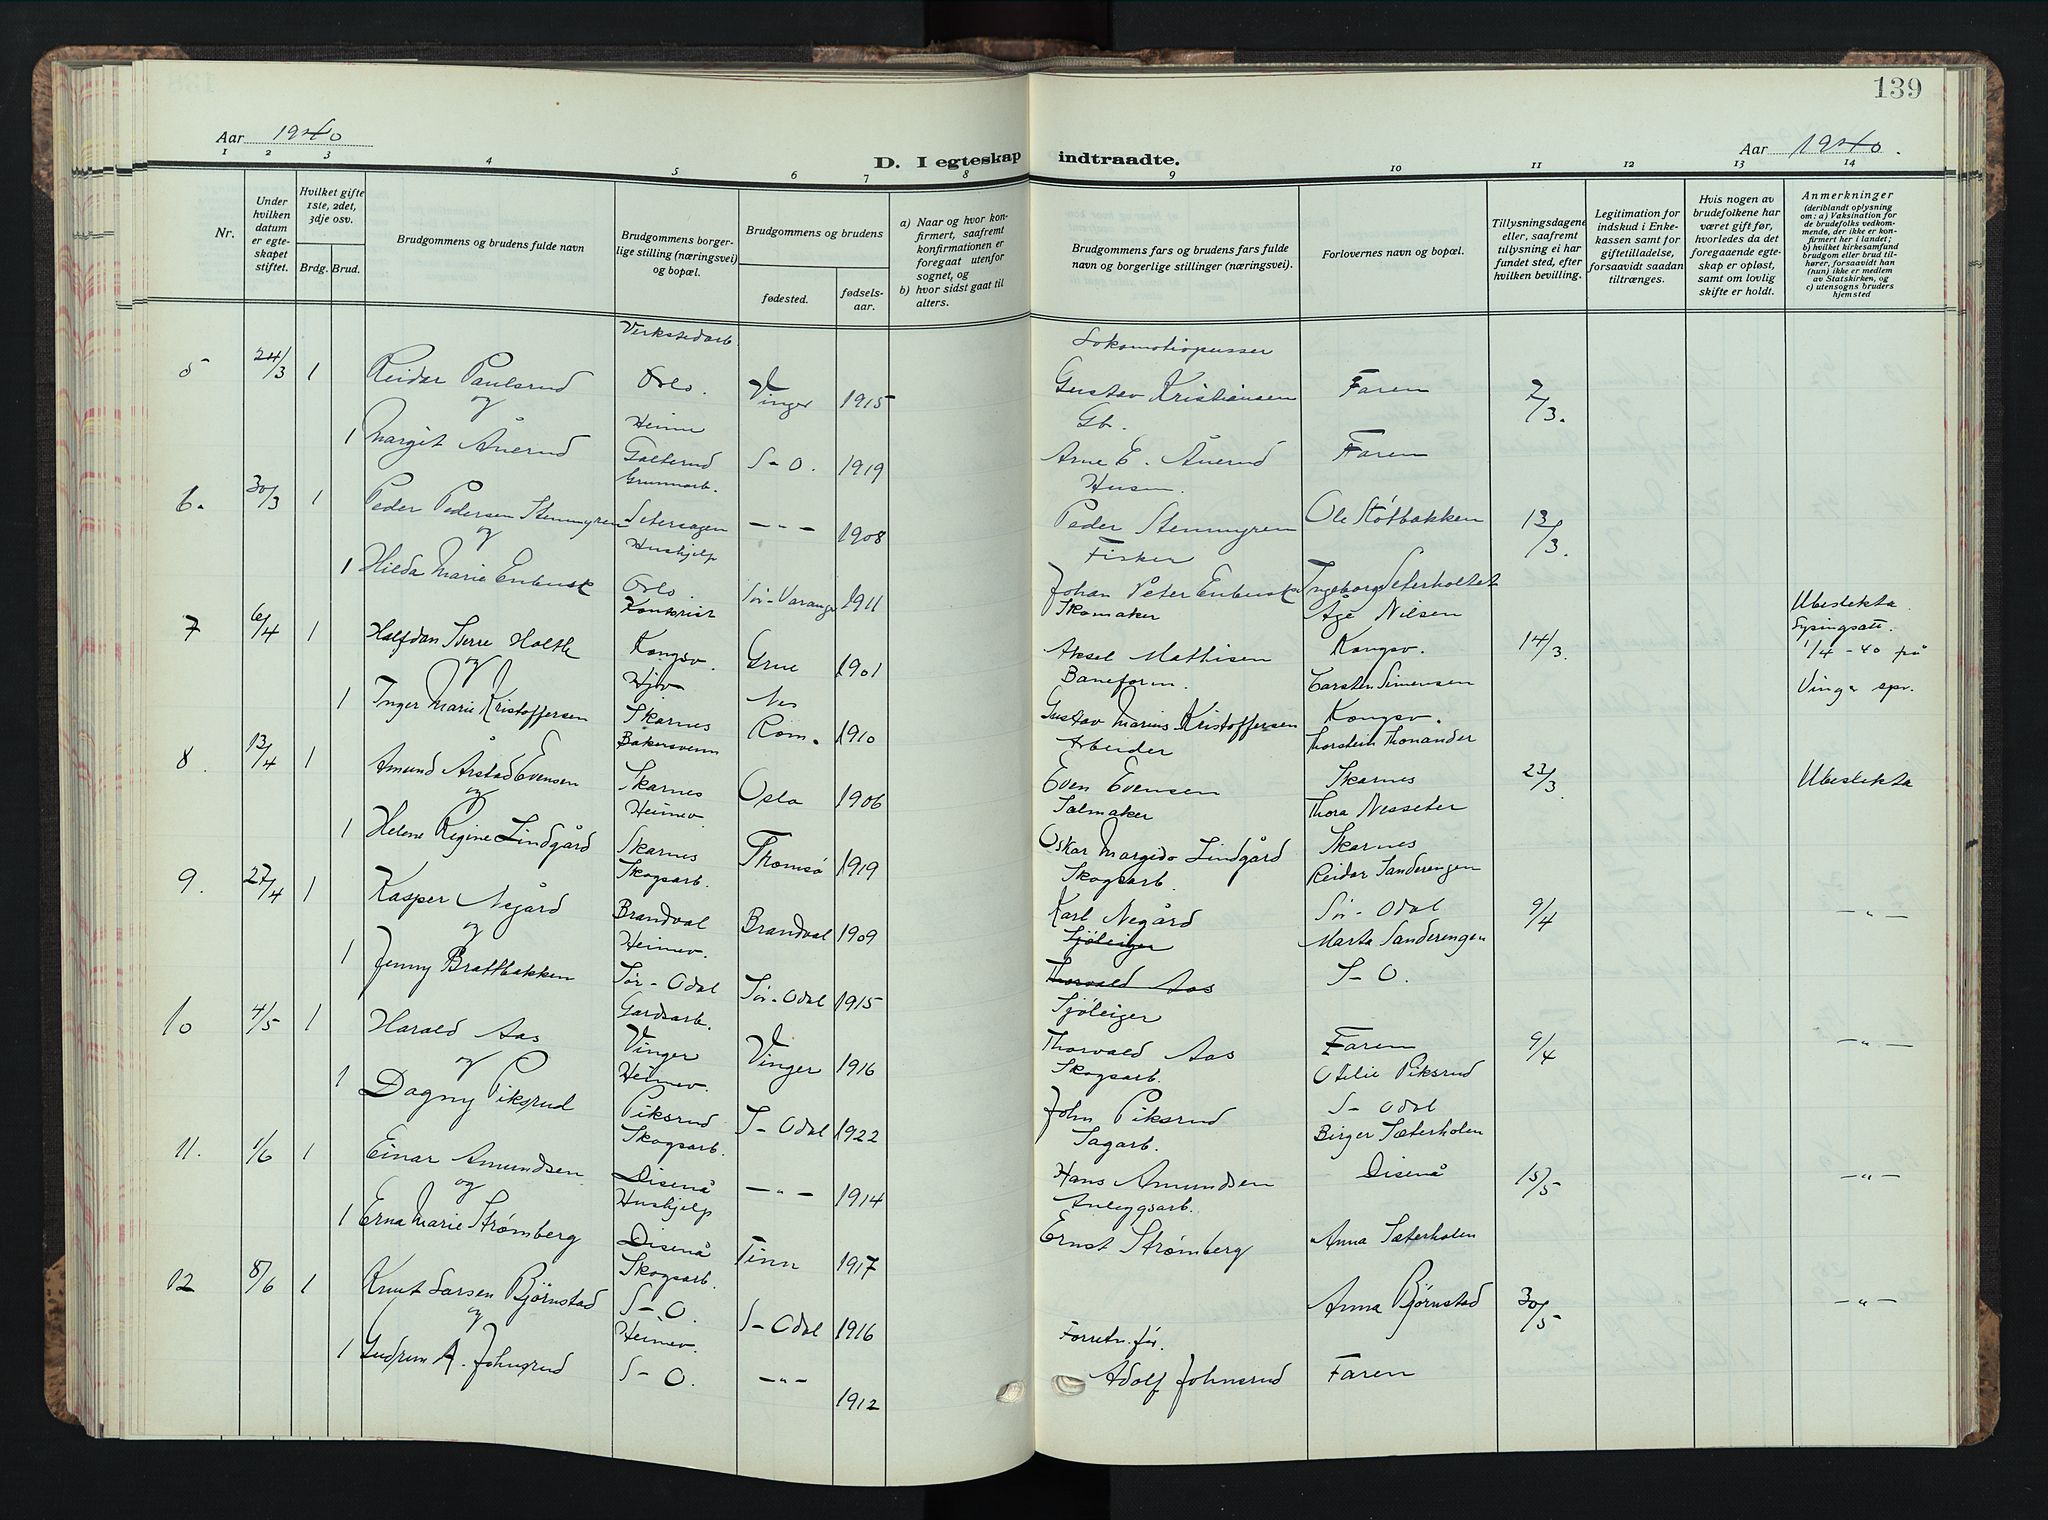 139
Aar 1940
D. I egteskap indtraadte.
Aar 1940.
1 2 3 4 5 6 7 8 9 10 11 12 13 14
Nr.
Under hvilken datum er egteskapet stiftet.
Hvilket gifte 1ste, 2det, 3dje osv.
Brdg. Brud.
Brudgommens og brudens fulde navn
Brudgommens borgerlige stilling (næringsvei) og bopæl.
Brudgommens og brudens
fødested.
fødselsaar.
a) Naar og hvor konfirmert, saafremt konfirmationen er foregaat utenfor sognet, og
b) hvor sidst gaat til alters.
Brudgommens fars og brudens fars fulde navn og borgerlige stillinger (næringsvei).
Forlovernes navn og bopæl.
Tillysningsdagene eller, saafremt tullysning ei har fundet sted, efter hvilken bevilling.
Legitimation for indskud i Enkekassen samt for giftetilladelse, forsaavidt saadan tiltrænges.
Hvis nogen av brudefolkene har været gift før, hvorledes da det foregaaende egteskap er opløst, samt om lovlig skifte er holdt.
Anmerkninger
(deriblandt oplysning om: a) Vaksination for de brudefolks vedkommende, der ikke er konfirmert her i landet; b) hvilket kirkesamfund brudgom eller brud tilhører, forsaavidt han (hun) ikke er medlem av Statskirken, og c) utensogns bruders hjemsted
Verkstedarb. Lokomotivpusser
5 24/3 1 Reidar Paulsrud Oslo. Vinger 1915 Gustav Kristiansen Faren 7/3.
og Heimev Gb.
1 Margit Ånerud Galterud S-O. 1919 Arne E. Ånerud Faren
Grunnarb. Husm.
6. 30/3 1 Peder Pedersen Stenmyren Seterskogen —"— 1908 Peder Stenmyren Ole Støtbakken 13/3.
og Hushjelp Fisker
1 Hilda Marie Enbusk Oslo. Sør-Varanger 1911 Johan Peter Enbusk Ingeborg Seterholtet
Kontorist Skomaker Åge Nilsen Ubeslekta
7 6/4 1 Halfdan Sverre Holtle Kongsv. Grue 1901 Aksel Mathisen Kongsv. 14/3. Lysingsatt.
og Hjv Nes Baneform. Carsten Simensen 1/4-40 på
1 Inger Marie Kristoffersen Skarnes Rom. 1910 Gustav Marius Kristoffersen Kongsv. Vinger spr.
Bakersvenn Arbeider Thorstein Thonander
8. 13/4 1 Amund Årstad Evensen Skarnes Oslo 1906 Even Evensen Skarnes 23/3. Ubeslekta
og Heimev. Salmaker Thora Nesseter
1 Helene Regine Lindgård Skarnes Thomsø 1919 Oskar Margido Lindgård Skarnes
Skogsarb. Skogsarb. Reidar Sanderengen
9. 27/4 1 Kasper Negård Brandval Brandval 1909 Karl Negård Sør-Odal 9/4 —"—
og Heimev. Sjøleiger Marta Sanderengen
1 Jenny Brattbakken Sør-Odal Sør-Odal 1915 Thorvald Aas S-O.
Gardsarb. Sjøleiger
10 4/5 1 Harald Aas Vinger Vinger 1916 Thorvald Aas Faren 9/4 —"—
og Heimev. Skogsarb. Otilie Piksrud
1 Dagny Piksrud Piksrud S-Odal 1922 John Piksrud S-Odal
Skogsarb. Sagarb. Birger Sæterholen
11. 1/6 1 Einar Amundsen Disenå —"— 1914 Hans Amundsen Disenå 15/5 —"—
og Hushjelp Anleggsarb.
1 Erna Marie Strømberg Disenå Tinn 1917 Ernst Strømberg Anna Sæterholen
Skogsarb.
12 8/6 1 Knut Larsen Bjørnstad S-O. S-Odal 1916 Anna Bjørnstad 30/5 —"—
og Heimev. Forretn.før.
1 Gudrun A. Johnsrud S-O. —"— 1912 Adolf Johnsrud Faren